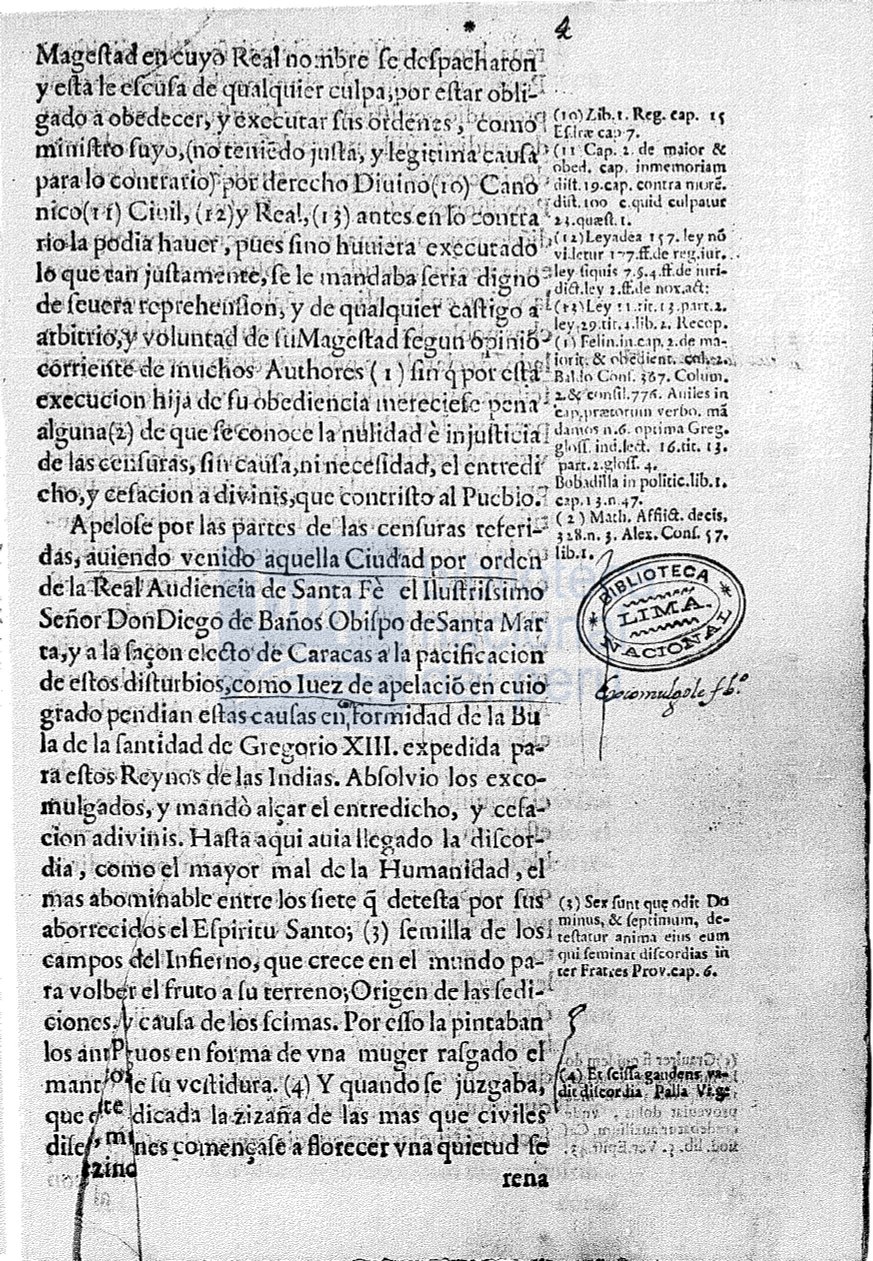 4
Mageſtad en cuyo Real nombre ſe deſpacharon
y eſta le eſcuſa de qualquier culpa, por eſtar obli-
gado a obedecer, y executar ſus ordenes, como
miniſtro ſuyo, (no teniẽdo juſta, y legitima cauſa
para lo contrario) por derecho Diuino (10) Cano
nico (11) Ciuil, (12) y Real, (13) antes en lo contra
rio la podia hauer, pues ſino huuiera executado
lo que tan juſtamente, ſe le mandaba ſeria digno
de ſeuera reprehenſion, y de qualquier caſtigo a
arbitrio, y voluntad de ſu Mageſtad ſegun opiniõ
corriente de muchos Authores (1) ſin q̃ por eſta
execucion hija de ſu obediencia merecieſe pena
alguna (2) de que ſe conoce la nulidad è injuſticia
de las cenſuras, ſin cauſa, ni neceſidad, el entredi
cho, y ceſacion a divinis, que contriſto al Pueblo.
Apeloſe por las partes de las cenſuras referi-
das, auiendo venido aquella Ciudad por orden
de la Real Audiencia de Santa Fè el Iluſtriſsimo
Señor Don Diego de Baños Obiſpo de Santa Mar
ta, y a la ſaçon electo de Caracas a la pacificacion
de eſtos diſturbios, como Iuez de apelaciõ en cuio
grado pendian eſtas cauſas en formidad de la Bu
la de la ſantidad de Gregorio XIII. expedida pa-
ra eſtos Reynos de las Indias. Abſolvio los exco-
mulgados, y mandò alçar el entredicho, y ceſa-
cion adivinis. Haſta aqui auia llegado la diſcor-
dia, como el mayor mal de la Humanidad, el
mas abominable entre los ſiete q̃ deteſta por ſus
aborrecidos el Eſpiritu Santo; (3) ſemilla de los
campos del Infierno, que crece en el mundo pa-
ra volber el fruto a ſu terreno; Origen de las ſedi-
ciones, y cauſa de los ſcimas. Por eſſo la pintaban
los antiguos en forma de vna muger raſgado el
de ſu veſtidura. (4) Y quando ſe juzgaba,
que dicada la zizaña de las mas que civiles
nes començaſe a florecer vna quietud ſe
rena
(10) Lib. 1. Reg. cap. 15
Eſdræ cap 7.
(11 Cap. 2. de maior &
obed. cap. inmemoriam
diſt. 19. cap. contra morẽ.
diſt. 100 c. quid culpatur
23. quæſt. 1.
(12) Ley adea 157. ley nõ
videtur 177. ff. de reg. iur.
ley ſiquis 7. §. 4. ff. de iuri-
dict. ley 2. ff. de nox. act:
(13) Ley 11. tit. 13. part. 2.
ley. 29. tit. 4. lib. 2. Recop.
(1) Felin. in cap. 2. de ma-
iorit. & obedient. col. 2.
Baldo Conſ. 367. Colum.
2. & conſil. 776. Auiles in
cap. prætorum verbo. mã
damos n. 6. optima Greg.
gloſſ. ind. lect. 16. tit. 13.
part. 2. gloſſ. 4.
Bobadilla in politic. lib. 1.
cap. 13. n. 47.
(2) Math. Afflict. decis,
328. n. 3. Alex. Conſ. 57.
lib. 1.
BIBLIOTECA
LIMA.
NACIONAL
Excomulgole
(3) Sex ſunt que odit Do
minus, & ſeptimum, de-
teſtatur anima eius eum
qui ſeminat diſcordias in
ter Fratres Prov. cap. 6.
(4) Et ſciſſa gaudens va-
dit diſcordia Palla Virg: